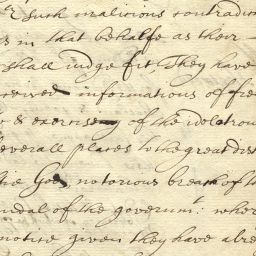 & such malicious contradic
s in that behalfe as their
shall iudge fit, They have
informations of fre
& exerciseing of the idolatrou
severall places to the great dist
the Gos notorious breach of t
ndal of the governmt. wher
notise given they have alre